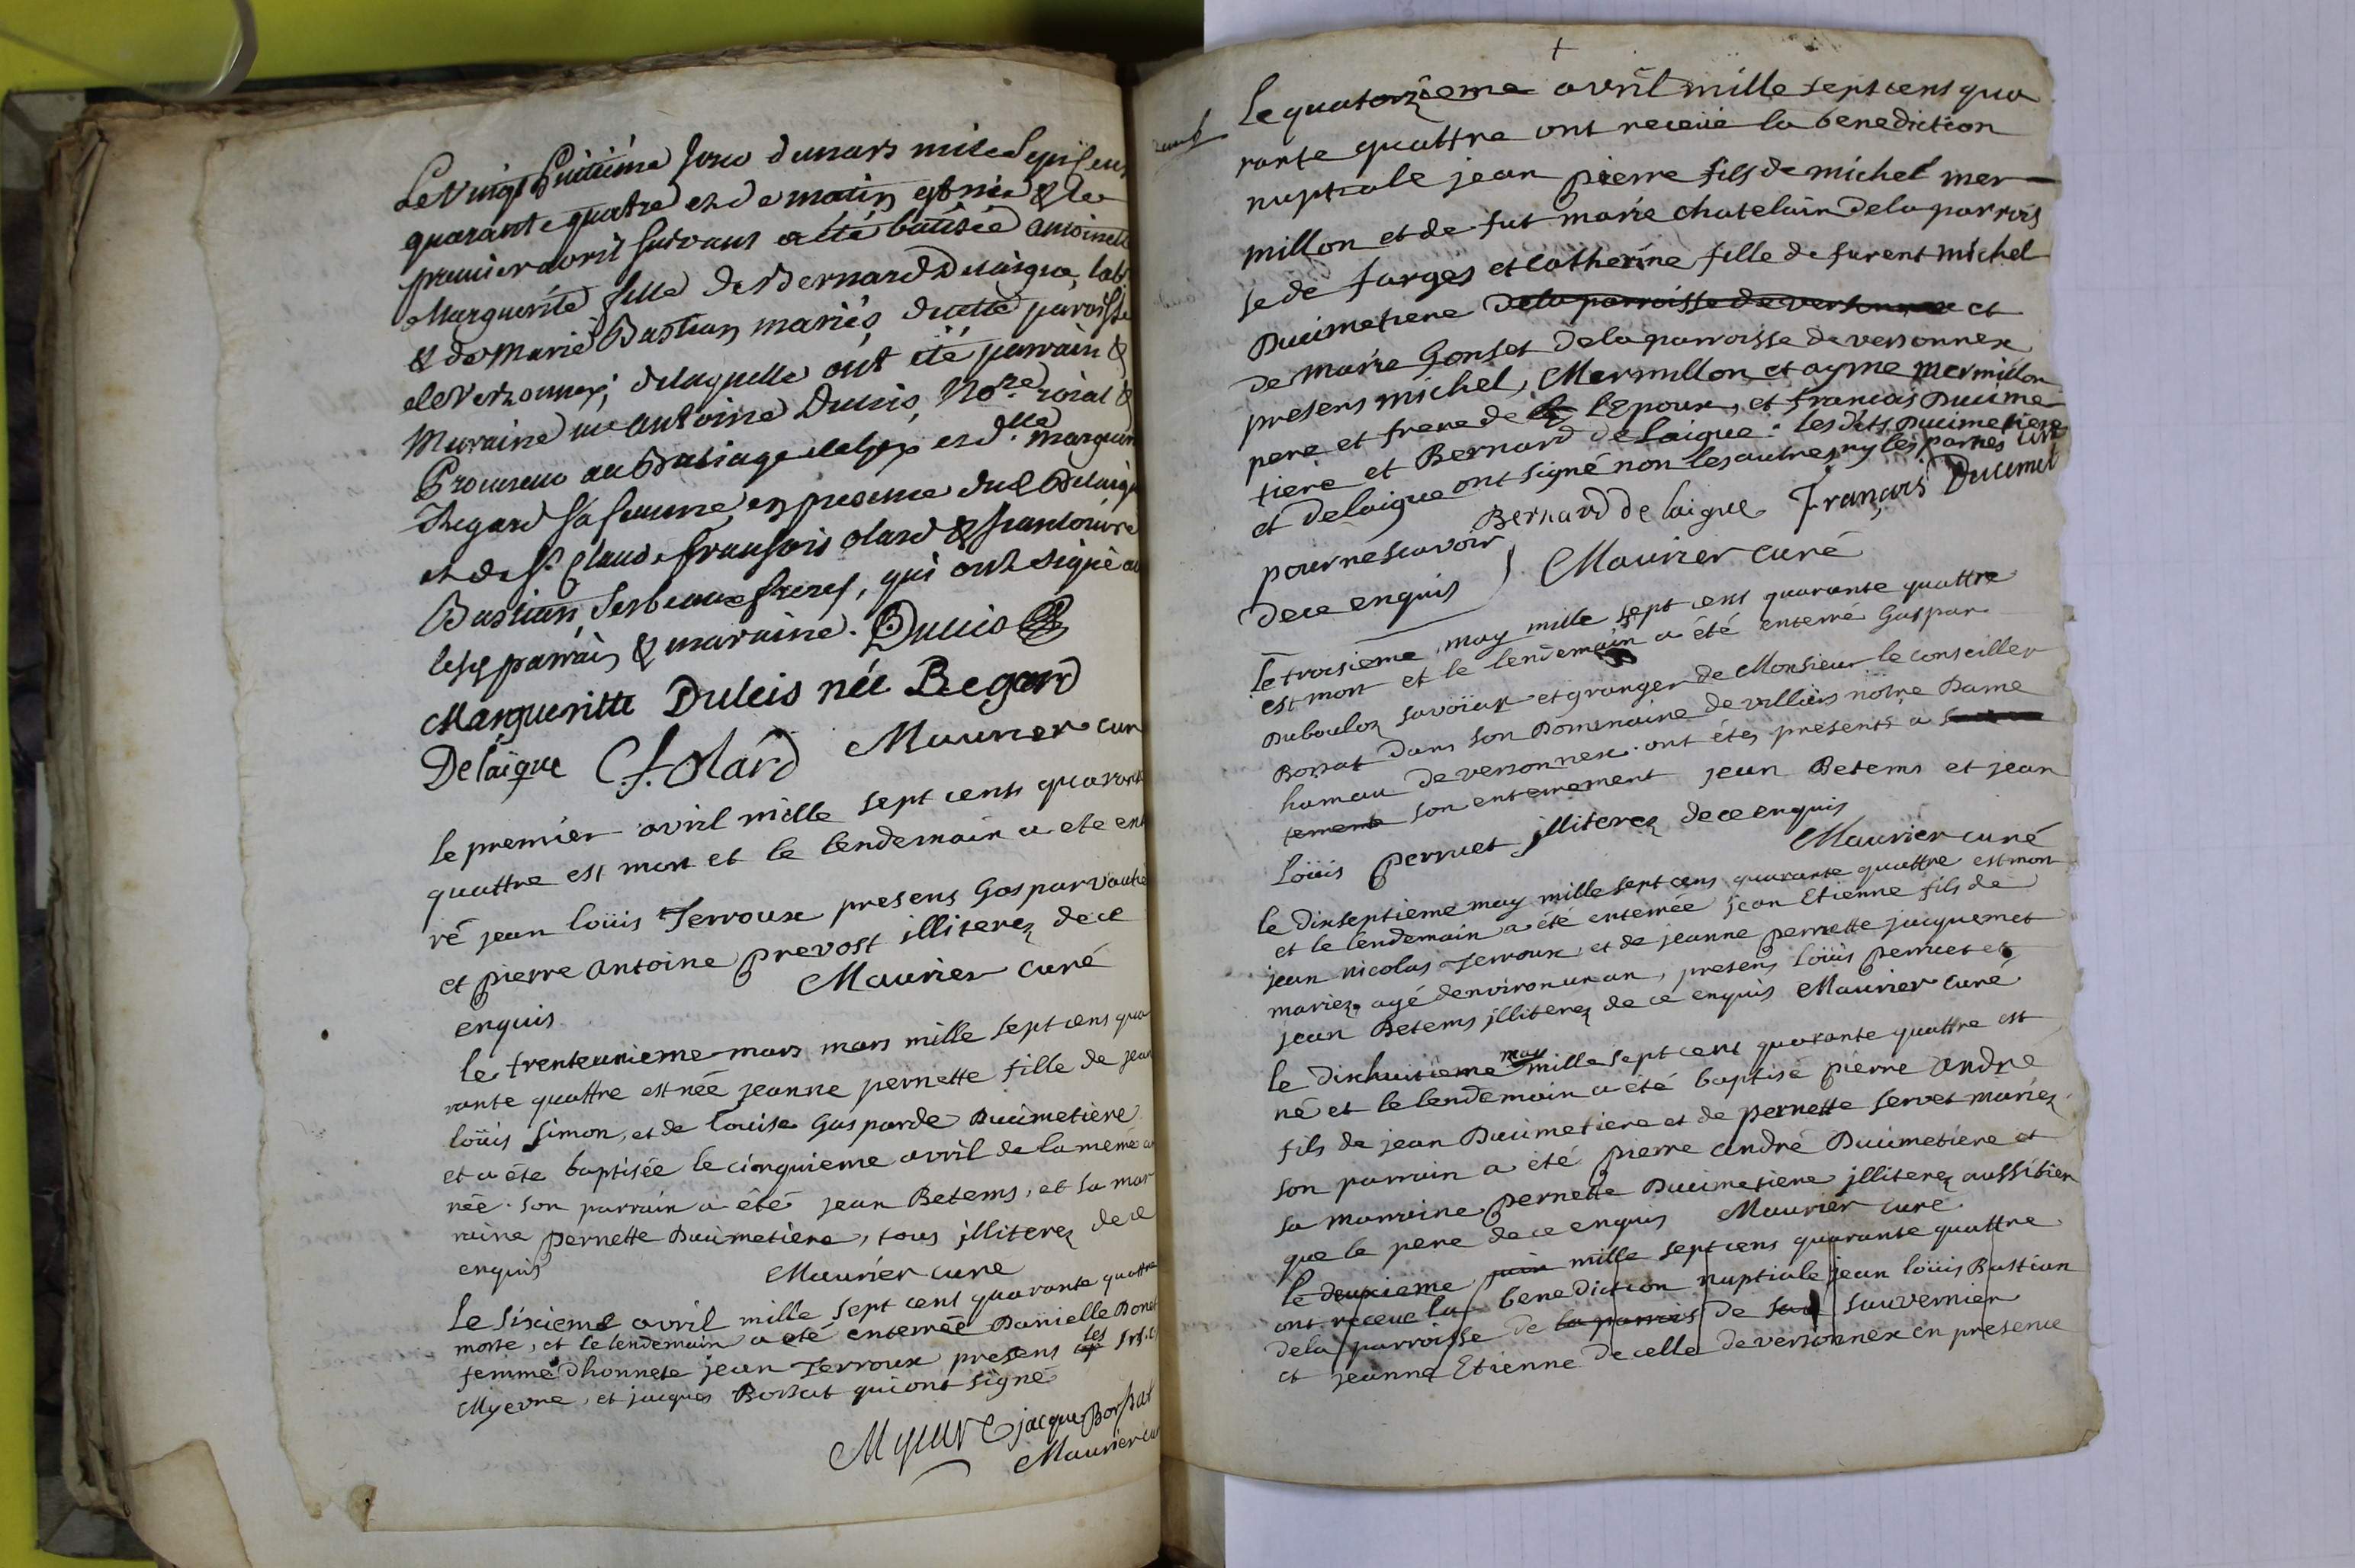 Le Vingt huitieme jour de mars mile sept cent
quarante quatre et de matin est née & le
premier avril suivant a été batisée Antoinette
Marguerite fille de Bernard Delaigue, lab
& de Marie Bastian mariés ducette paroisse
de Versonnex, delaquelle ont été parrain &
Maraine me Antoine Ducis, Nore roial &
Procureur au Baliage de Gex et dlle Marguer
Regard sa femme, en presence dud Delaigue
et de Sr Claude François olard &
Bastian, ses beaux freres, qui ont signé av
lesd parrain & maraine. Ducis
Margueritte Ducis née Regard
Delaigue C. f. olard Maurier cur
le premier avril mille sept cents quarant
quattre est mort et le lendemain a ete ent
ré jean loüis Terroux presens Gaspar vautie
et pierre antoine prevost illiterez de ce
enquis. Maurier curé
le trenteunieme mars mars mille sept cens qua
rante quattre est née jeanne pernette fille de jean
loüis Simon, et de louise Gasparde Ducimetiere
et a éte baptisée le cinquieme avril de la meme a
neé. son parrain a été jean Betems, et sa mar
raine pernette Ducimetiere, tous jlliterez de ce
enquis Maurier cure
Le sixieme avril mille sept cent quarante quattre
morte, et le lendemain a eté enterrée Danielle Donet
femme d'honnete jean Terroux presens les srs
Myevre, et jacques Borsat qui ont signé
Myevre jacque Borsat
Maurier cur
Le quatorzieme avril mille sept cens qua
rante quattre ont receue la benediction
nuptiale jean pierre fils de michel mer
millon et de fut marie chatelain de la parrois
se de farges et catherine fille de furent michel
Ducimetiere de la parroisse de versonnex et
de marie Gonset de la parroisse de versonnex
presens michel, Mermillon et ayme mermillon
pere et frere de l'Epoux, et francois Ducime
tiere et Bernard de laigue. les dits Ducimetiere
et Delaigue ont signé non les autres ny les parties
pour ne scavoir Bernard de laigue François Ducimet
de ce enquis Maurier curé
le troisieme may mille sept cens quarante quattre
est mort et le lendemain a été enterré Gaspar
Dubouloz savoïar et granger de Monsieur le conseiller
Borsat dans son Domenaine de villiers nôtre Dame
hameau de versonnex. ont étés presents a
tement son enterrement jean Betems et jean
Loüis perruet jlliterez de ce enquis
Maurier curé
le dixseptieme may mille sept cens quarante quattre est mort
et le lendemain a été enterrée jean Etienne fils de
jean nicolas Terroux et de jeanne pernette jacquemet
mariez. agé d'environ un an, presens loüis perruet et
jean Betems jlliterez de ce enquis Maurier curé
le dixhuitieme may mille sept cent quarante quattre est
né et le lendemain a été baptisé pierre andre
fils de jean Ducimetiere et de pernette servet mariez
son parrain a été pierre andré Ducimetiere et
sa marraine pernette Ducimetiere jlliterez aussi bien
que le pere de ce enquis Maurier cure
le deuxieme juin mille sept cens quarante quattre
ont receue la benediction nuptiale jean loüis Bastian
de la parroisse de la parrois de sau sauvernier
et jeanne Etienne de celle de versonnex en presence